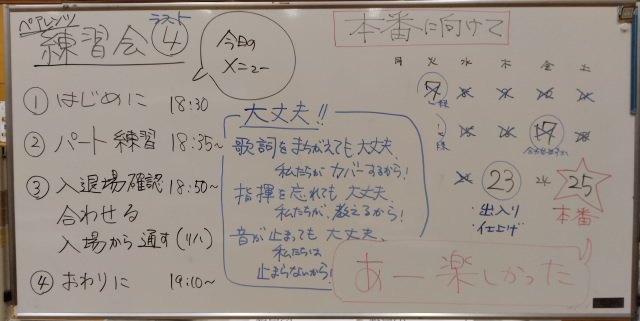 ペアレンツ ラスト
練習会④
今日の
メニュー
① はじめに 18:30
② パート練習 18:35~
③ 入退場確認 18:50~
合わせる
入場から通す(リハ)
④ おわりに 19:10~
大丈夫!!
歌詞をまちがえても大丈夫、
私たちがカバーするから!
指揮を忘れても大丈夫、
私たちが、教えるから!
音が止まっても大丈夫。
私たちは
止まらないから!
本番に向けて
月 火 水 木 金 土
17
23
24
25
出入り
仕上げ
本番
あー楽しかった